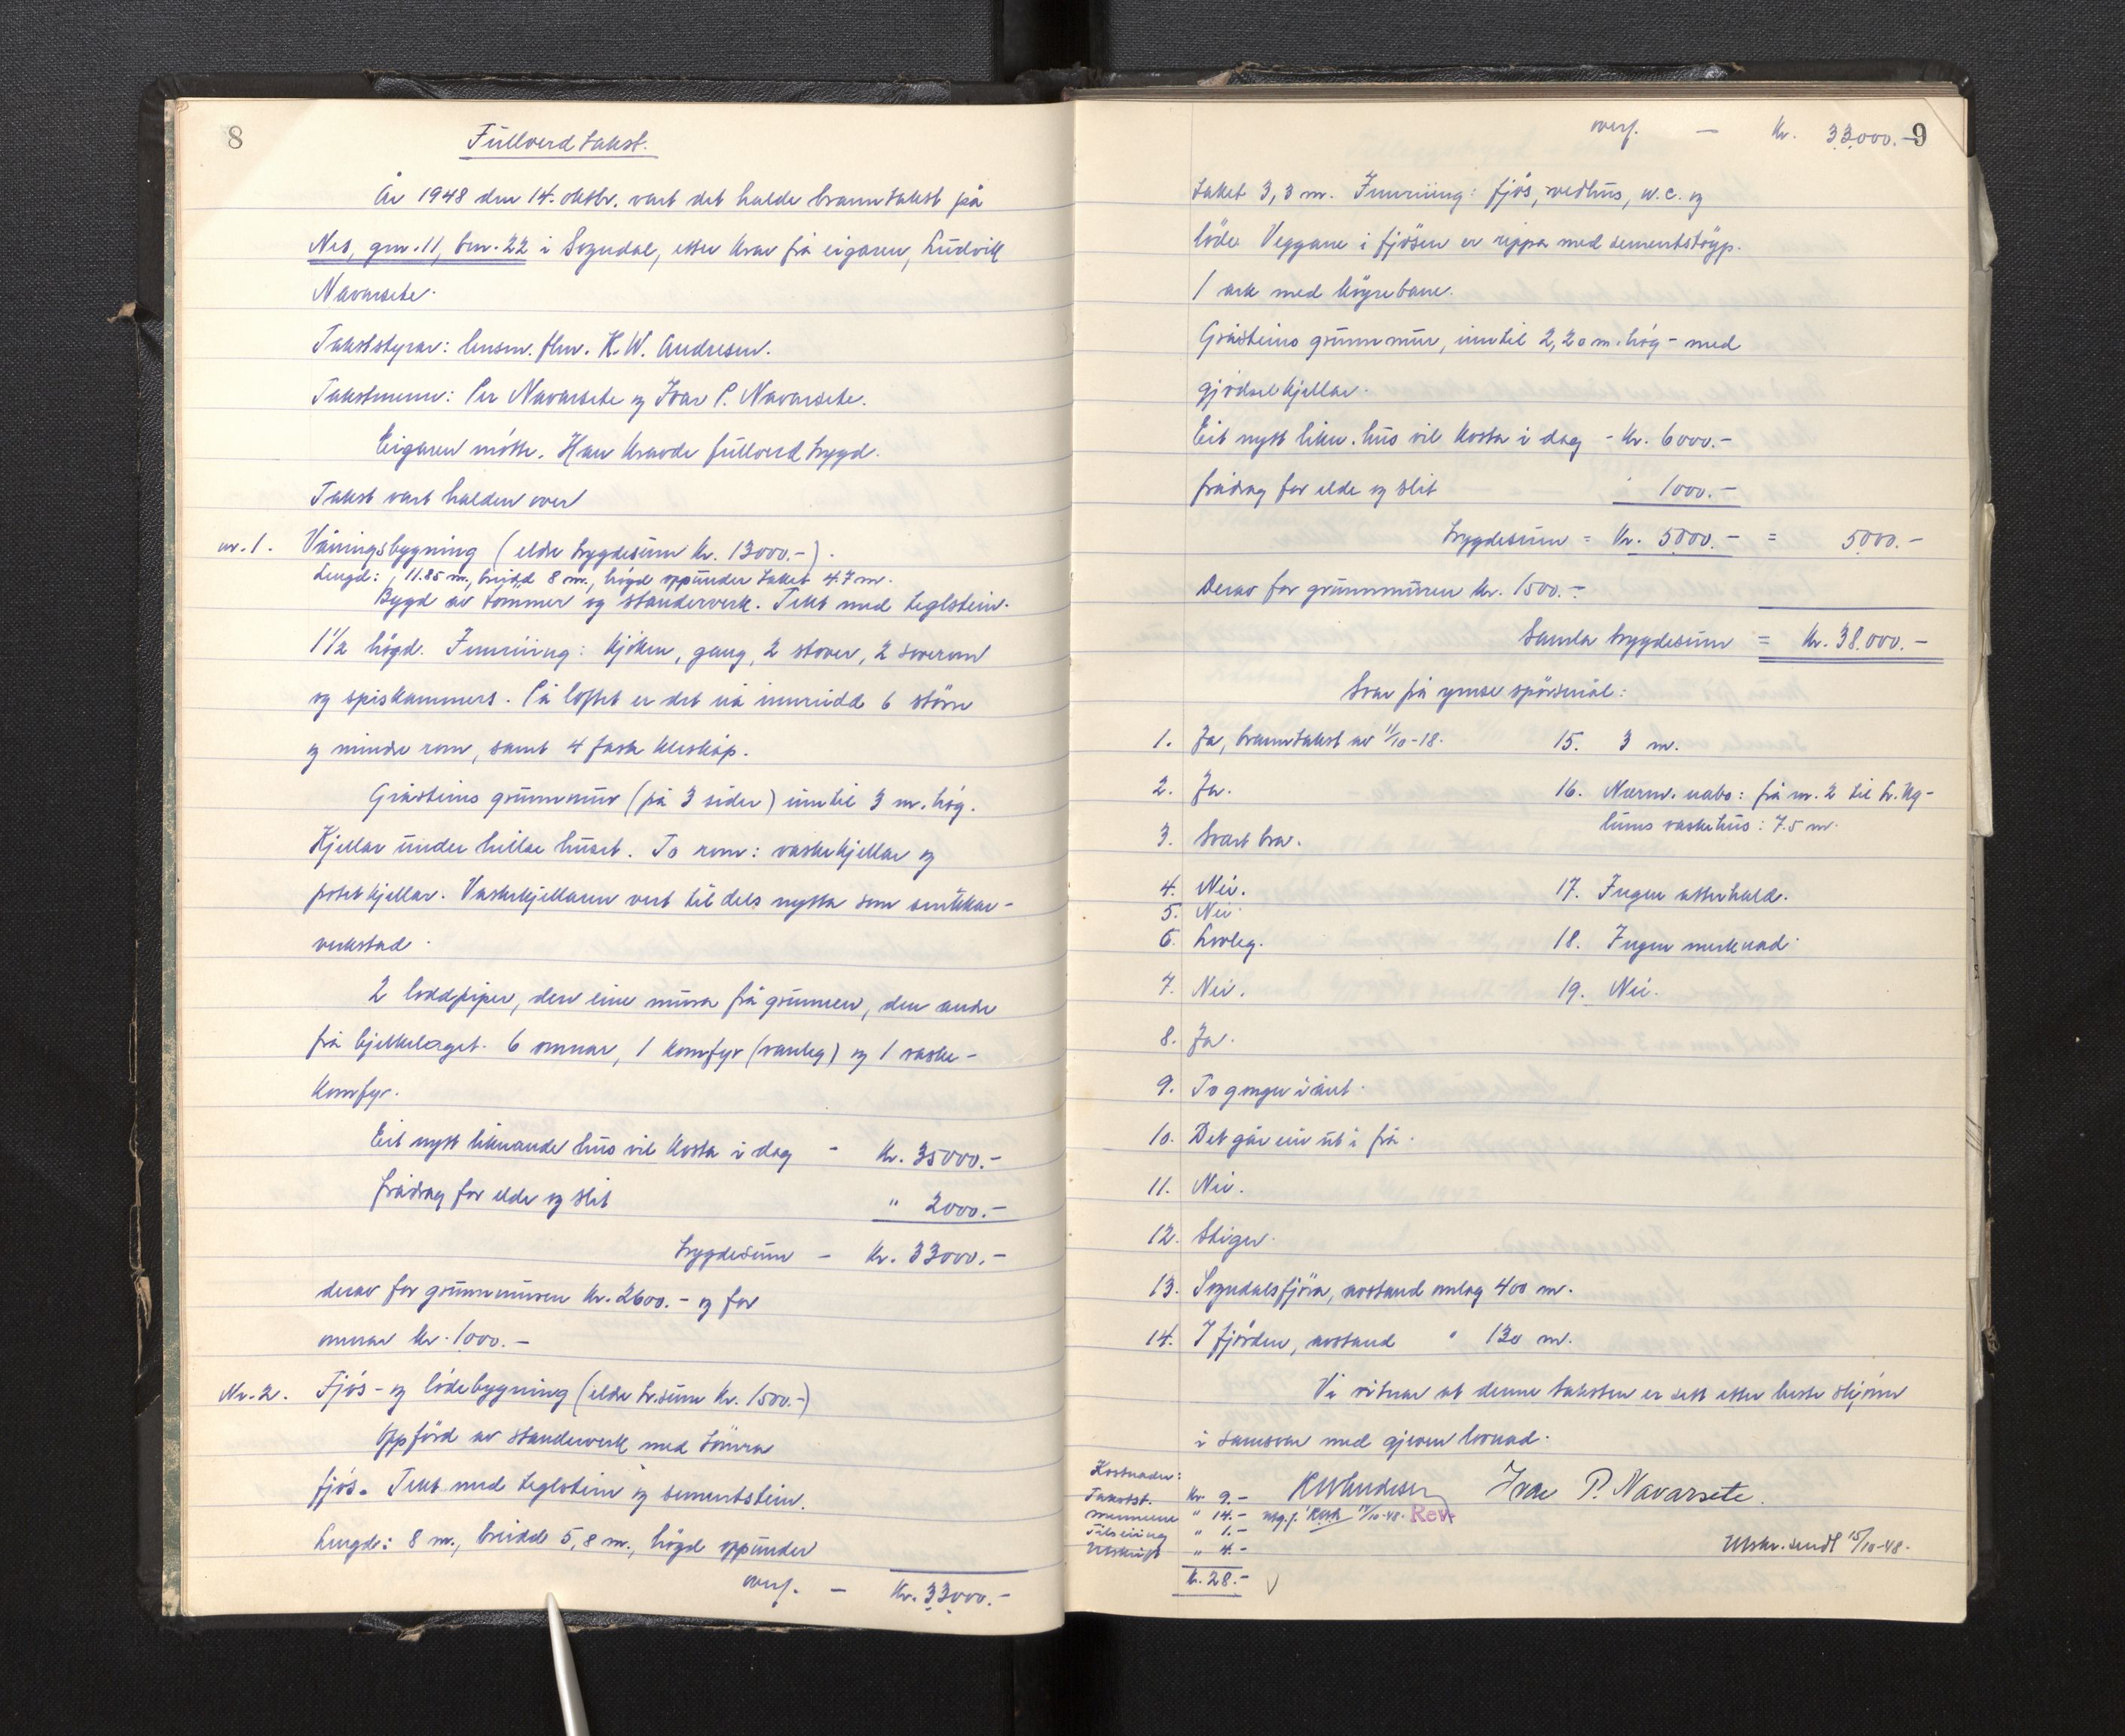 8
Fullverdtakst.
År 1948 den 14. oktbr. vart det halde branntakst på
Nes, gnr. 11, bnr. 22 i Sogndal, etter krav frå eigaren, Ludvik
Navarsete.
Takststyrar: lensm. flm. K. W. Andresen.
Takstmenn: Per Navarsete og Ivar P. Navarsete.
Eigaren møtte. Han kravde fullverdtrygd.
Takst vart halden over
nr. 1. Våningsbygning (eldre trygdesum kr. 13000.-).
Lengd: 11.85 m., breidd 8 m., høgd oppunder taket 4.7 m.
Bygd av tømmer og standerverk. Tekt med teglstein.
1 1/2 høgd. Innreiing: kjøken, gang, 2 stover, 2 soverom
og spiskammers. På loftet er det nå innreidd 6 større
og mindre rom, samt 4 faste kleskåp.
Gråsteins grunnmur (på 3 sider) inntil 3 m. høg.
Kjellar under heile huset. To rom: vaskekjellar og
potetkjellar. Vaskekjellaren vert til dels nytta som snikkar-
verkstad.
2 loddpiper, den eine mura frå grunnen, den andre
frå bjelkelaget. 6 omnar, 1 komfyr (vanleg) og 1 vaske-
komfyr.
Eit nytt liknande hus vil kosta i dag - kr. 35000.-
frådrag for elde og slit " 2000.-
trygdesum - kr. 33000.-
derav for grunnmuren kr. 2600.- og for
omnar kr. 1000.-
Nr. 2. Fjøs- og lødebygning (eldre tr.sum kr. 1500.-)
Oppførd av standerverk med tømra
fjøs. Tekt med teglstein og sementstein.
Lengde: 8 m., breidde 5,8 m., høgde oppunder
overf. - Kr. 33000.-
overf. - Kr. 33000.- 9
taket 3,3 m. Innreiing: fjøs, vedhus, w.c. og
løde. Veggane i fjøsen er rappa med sementstøyp.
1 ark med køyrebane.
Gråsteins grunnmur, inntil 2,20 m. høg - med
gjødselkjellar.
Eit nytt likn. hus vil kosta i dag - kr. 6000.-
frådrag for elde og slit " 1000.-
trygdesum = Kr. 5000.- = 5000.-
Derav for grunnmuren kr. 1500.-
Samla trygdesum = Kr. 38.000.-
Svar på ymse spørsmål:
1. Ja, branntakst av 11/10-18.
2. Ja.
3. Svært bra.
4. Nei.
5. Nei.
6. Lovleg.
7. Nei.
8. Ja.
9. To gonger i året.
10. Det går ein ut i frå.
11. Nei.
12. Stiger.
13. Sogndalsfjøra, avstand omlag 400 m.
14. I fjorden, avstand " 130 m.
15. 3 m.
16. Nærm. nabo: frå nr. 2 til
vaskehus: 7.5 m.
17. Ingen atterhald.
18. Ingen merknad.
19. Nei.
Vi vitnar at denne taksten er sett etter beste skjønn
i samsvar med gjeven lovnad.
Kostnader:
Takstst. Kr. 9.-
mennene " 14.-
Tilseiing " 1.-
Utskrift " 4.-
kr. 28.-
KWAndresen Ivar P. Navarsete.
14/10-48. Rev.
Utskr. sendt 15/10-48.